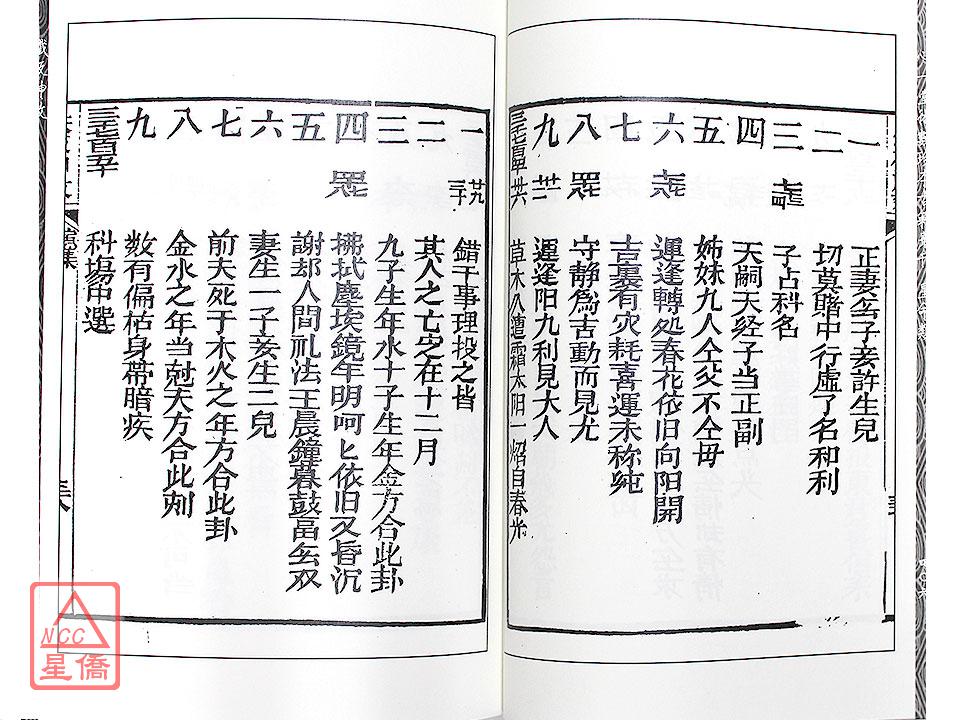 一 正妻孛子妾許生兒
二 切莫賭中行虛了名和利
三 子占科名
四 天嗣天经子当正副
五 姊妹九人仝父不仝母
六 運逢轉処春花依旧向阳開
七 吉裏有灾耗喜運未称純
八 守静為吉動而見尤
九 運逢阳九利見大人
草木八遭霜太阳一炤自春光
一 錯干事理投之皆
二 其人之亡必在十二月
三 九子生年水十子生年金方合此卦
四 拂拭塵埃鏡年明呵匕依旧又昏沉
五 謝却人間礼法王晨鐘暮鼓富無双
六 妻生一子妾生二兒
七 前夫死于木火之年方合此卦
八 金水之年当尅夫方合此刻
九 数有偏枯身帶暗疾
科場中選
NCC
星僑